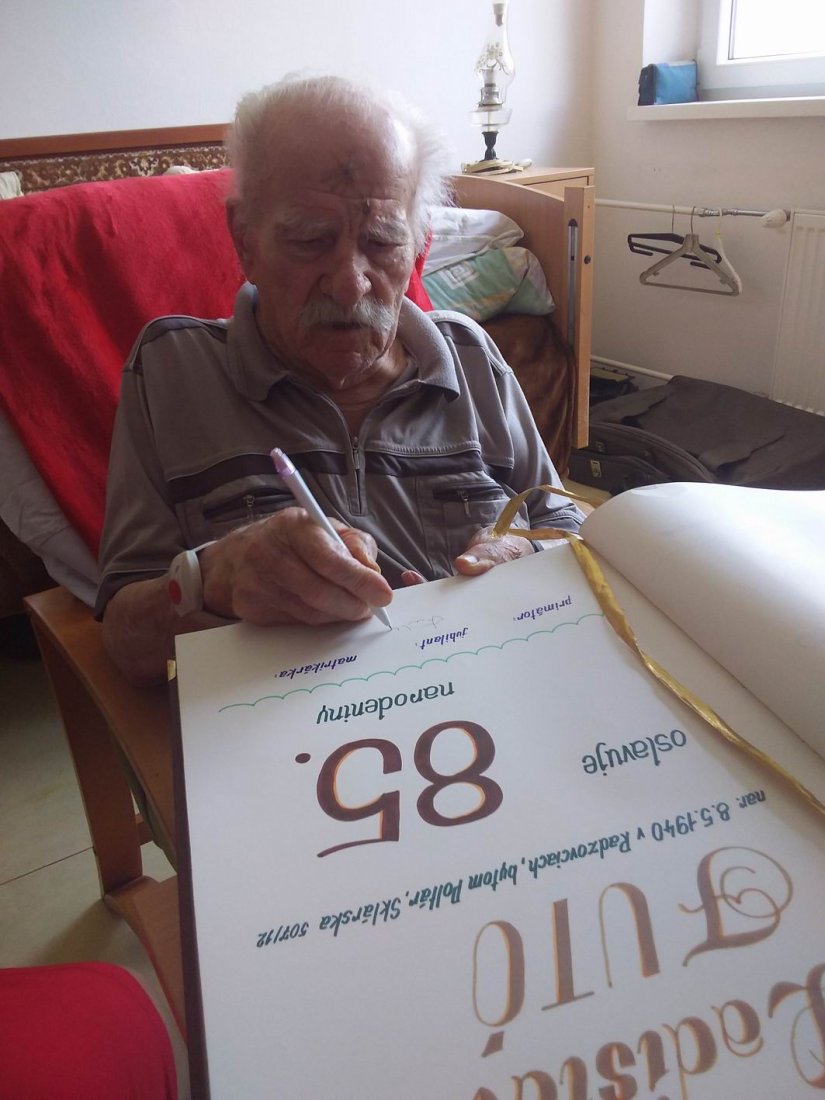 Ladislav
FUTÓ
nar. 8.5.1940 v Radzovciach, bytom Poltár, Sklárska 507/12
oslavuje
85.
narodeniny
primátor:
jubilant:
matrikárka: